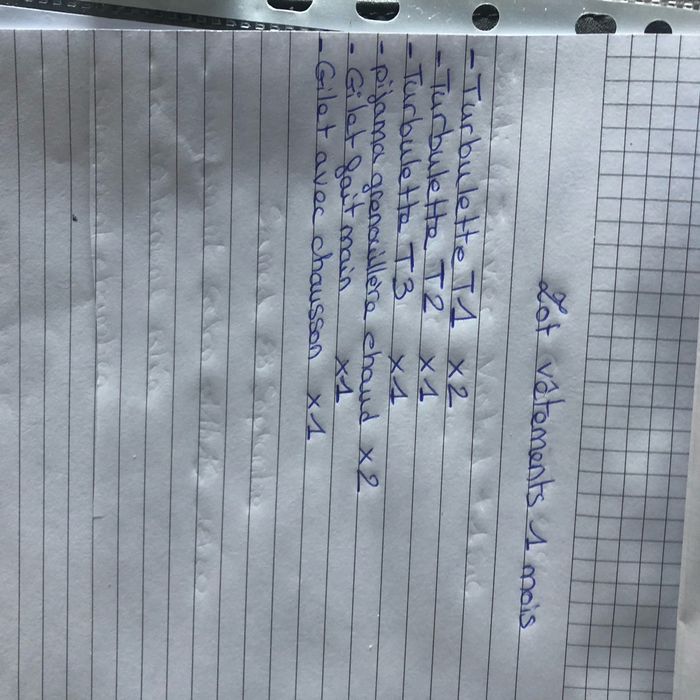 Lot vêtements 1 mois
- Turbulette T1 x2
- Turbulette T2 x1
- Turbulette T3 x1
- pijama grenouillère chaud x2
- Gilet fait main x1
- Gilet avec chausson x1